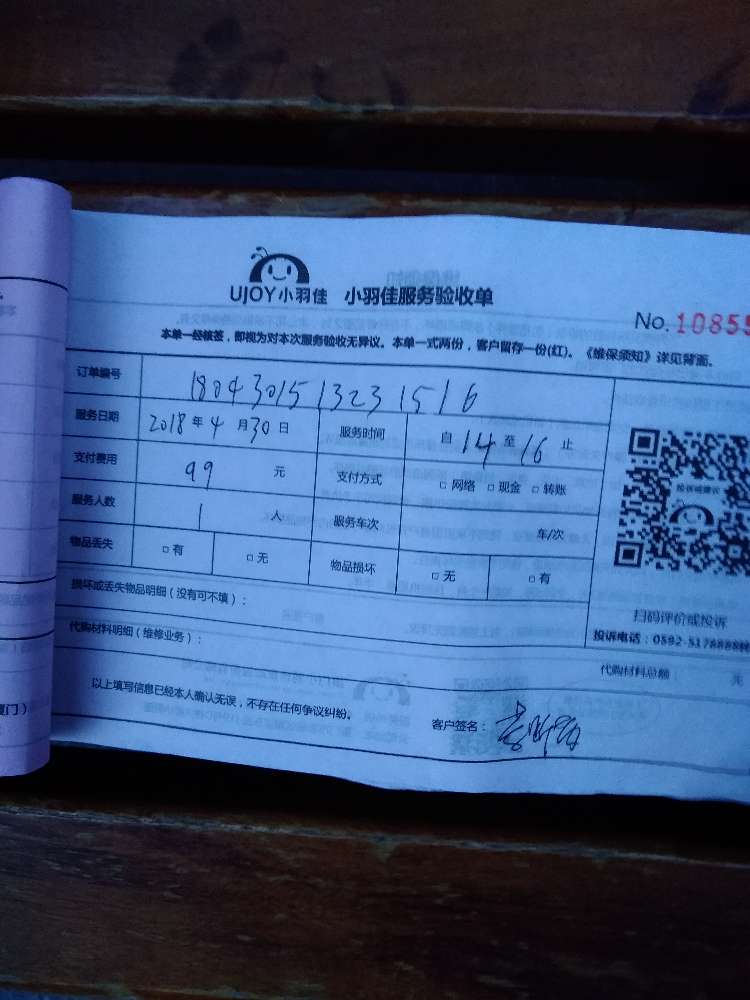 UJOY小羽佳 小羽佳服务验收单
No. 10855
本单一经核签,即视为对本次服务验收无异议。本单一式两份,客户留存一份(红)。《维保须知》详见背面。
订单编号 1804301513231516
服务日期 2018年4月30日 服务时间 自14至16止
支付费用 99 元 支付方式 □网络 □现金 □转账
服务人数 1 人 服务车次 车/次
物品丢失 □有 □无 物品损坏 □无 □有
损坏或丢失物品明细(没有可不填):
扫码评价或投诉
投诉电话:0592-5178888
代购材料明细(维修业务): 代购材料总额: 元
以上填写信息已经本人确认无误,不存在任何争议纠纷。
客户签名:
厦门)